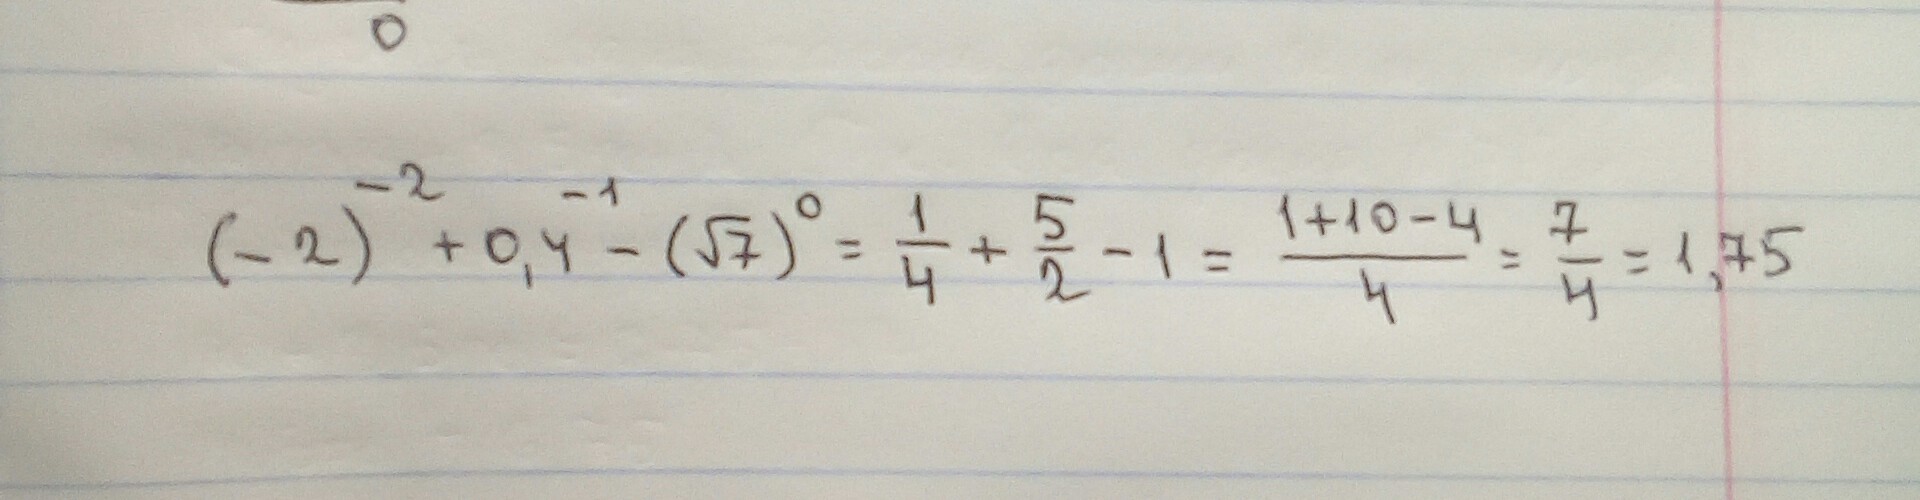 0
(-2)^{-2} + 0,4^{-1} - (√7)^0 = 1/4 + 5/2 - 1 = (1+10-4)/4 = 7/4 = 1,75